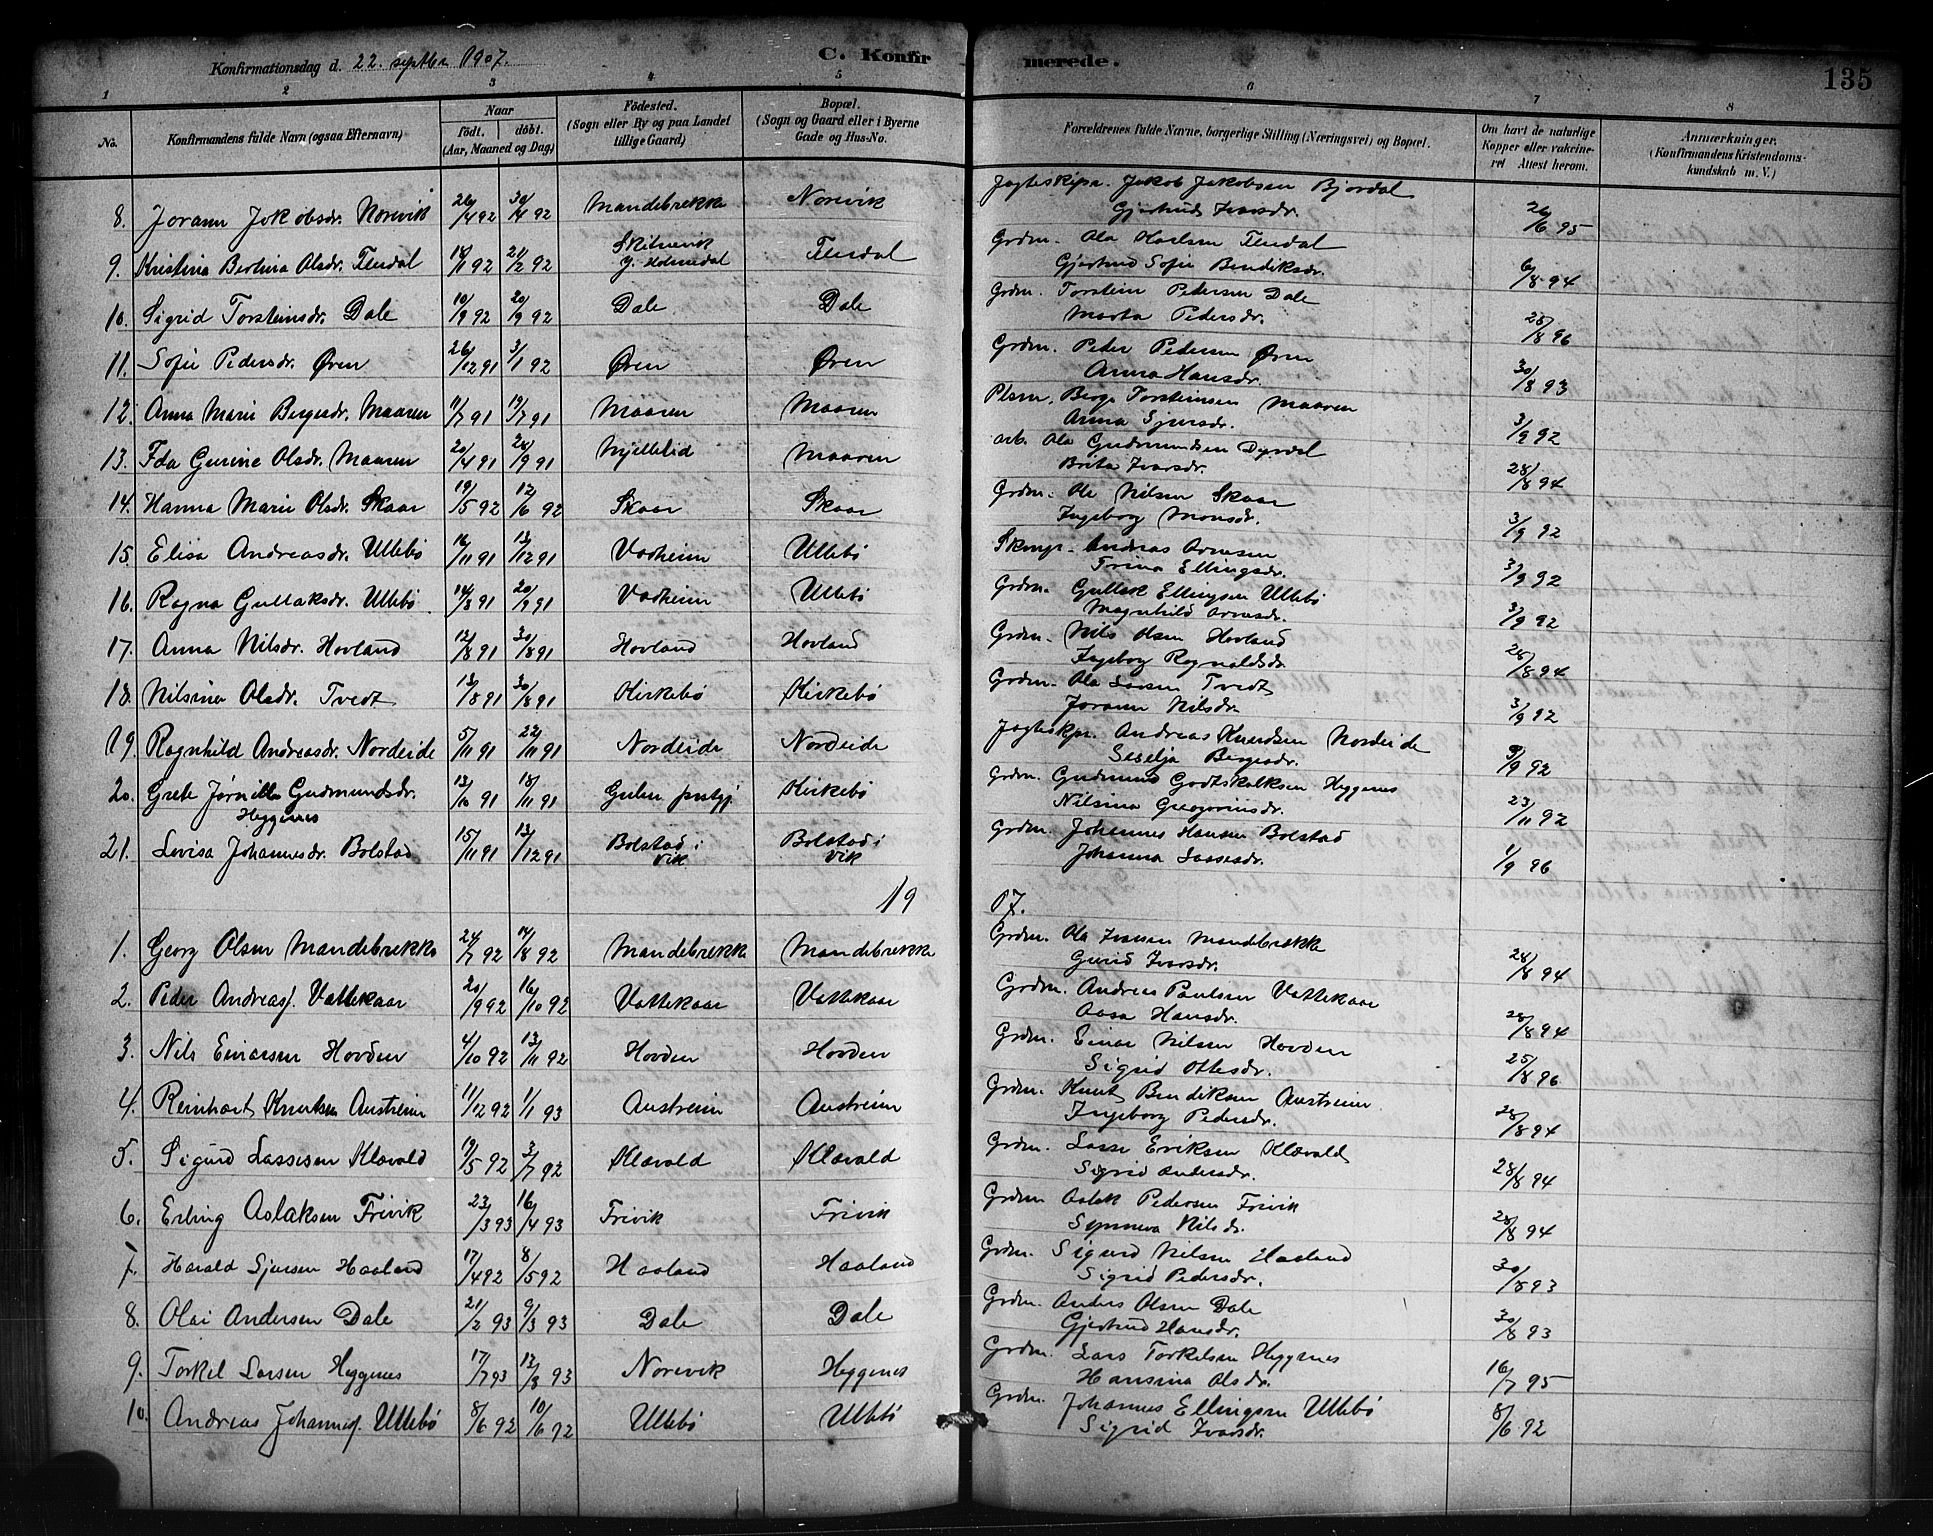 Konfirmationsdag d. 22. septbr 1907. C. Konfirmerede. 135
1 2 3 4 5 6 7 8
No. Konfirmandens fulde Navn (ogsaa Efternavn) Naar födt. döbt. (Aar, Maaned og Dag) Födested. (Sogn eller By og paa Landet tillige Gaard) Bopæl. (Sogn og Gaard eller i Byerne Gade og Hus-No. Forældrenes fulde Navne, borgerlige Stilling (Næringsvei) og Bopæl. Om havt de naturlige Kopper eller vakcineret Attest herom. Anmærkninger. (Konfirmandens Kristendomskundskab m. V.)
8. Jorann Jakobsdr. Norevik 26/4 92 30/4 92 Mandebrekke Norevik Jagteskipr. Jakob Jakobsen Bjordal
Gjertrud Ivarsdr. 26/6 95
9. Kristina Bertina Olsdr. 18/11 92 21/2 92 Grdm. Ola
Y. Holmedal Gjertrud Sofie Bendiksdr. 6/8 94
10. Sigrid Torsteinsdr. Dale 10/9 92 20/9 92 Dale Dale Grdm. Torstein Pedersen Dale
Marta Pedersdr. 25/8 96
11. Sofie Pedersdr. Øren 26/12 91 3/1 92 Øren Øren Grdm. Peder Pedersen Øren
Anna Hansdr. 30/8 93
12. Anna Marie Bergesdr. Maaren 11/7 91 19/7 91 Maaren Maaren Plsm. Berge Torsteinsen Maaren
Anna Sjursdr. 3/9 92
13. Ida Gurine Olsdr. Maaren 20/4 91 28/9 91 Maaren arb. Ola Gudmundsen Dyrdal
Brita Ivarsdr. 28/8 94
14. Hanna Marie Olsdr. Skaar 19/5 92 12/6 92 Skaar Skaar Grdm. Ole Nilsen Skaar
Ingeborg Monsdr. 3/9 92
15. Elisa Andreasdr. Ullebø 16/11 91 13/12 91 Vadheim Ullebø Andreas Arnesen
Trina Ellingsdr. 3/9 92
16. Ragna Gullaksdr. Ullebø. 14/8 91 20/9 91 Vadheim Ullebø Grdm. Gullak Ellingsen Ullebø
Magnhild Arnesdr. 3/9 92
17. Anna Nilsdr. Hovland 12/8 91 30/8 91 Hovland Hovland Grdm. Nils Olsen Hovland
Ingeborg Ragnaldsdr. 28/8 94
18. Nilsina Olsdr. Tvedt 13/8 91 30/8 91 Kirkebø Kirkebø Grdm. Ola Larsen Tvedt
Jorann Nilsdr. 3/9 92
19. Ragnhild Andreasdr. Nordeide 5/11 91 22/11 91 Nordeide Nordeide Jagteskpr. Andreas Knudsen Nordeide
Seselja Bergesdr. 3/9 92
20. Grete Jørnille Gudmundsdr. 13/10 91 18/11 91 Gulen prstgj. Kirkebø Grdm. Gudmund Godtskalksen Hyggenes
Heggenes Nilsina Gregoriusdr. 23/11 92
21. Lovisa Johannesdr. Bolstad 15/11 91 13/12 91 Bolstad i Vik Bolstad i Vik Grdm. Johannes Hansen Bolstad
Johanna Lassesdr. 1/9 96
19 07.
1. Georg Olsen Mandebrekke 24/7 92 14/8 92 Mandebrekke Mandebrekke Grdm. Ola Ivarsen Mandebrække
Gurid Ivarsdr. 28/8 94
2. Peder Andreasf. Vattekaar 20/9 92 16/10 92 Vattekaar Vattekaar Grdm. Andreas Paulsen Vattekaar
Aasa Hansdr. 28/8 94
3. Nils Einarsen Hovden 4/10 92 13/11 92 Hovden Hovden Grdm. Einar Nilsen Hovden
Sigrid Ottesdr. 25/8 96
4. Reinhart Knutsen Austreim 11/12 92 1/1 93 Austreim Austreim Grdm. Knut Bendiksen Austreim
Ingeborg Pedersdr. 28/8 94
5. Sigurd Lassesen Klævold 19/5 92 3/7 92 Klævold Klævold Grdm. Lasse Eriksen Klævold
Sigrid Andersdr. 28/8 94
6. Erling Aslaksen Frivik 23/3 93 16/4 93 Frivik Frivik Grdm Aslak Pedersen Frivik
Synneva Nilsdr. 28/8 94
7. Harald Sjursen Haaland 17/4 92 8/5 92 Haaland Haaland Grdm. Sigurd Nilsen Haaland
Sigrid Pedersdr. 30/8 93
8. Olai Andersen Dale 21/2 93 9/3 93 Dale Dale Grdm. Anders Olsen Dale
Gjertrud Hansdr. 30/8 93
9. Torkel Larsen Heggenes 17/7 93 13/8 93 Norevik Heggenes Grdm. Lars Torkelsen Heggenes
Hansina Olsdr. 16/7 95
10. Andreas Johannesf. Ullebø 8/6 92 10/6 92 Ullebø Ullebø Grdm. Johannes Ellingsen Ullebø
Sigrid Ivarsdr. 8/6 92